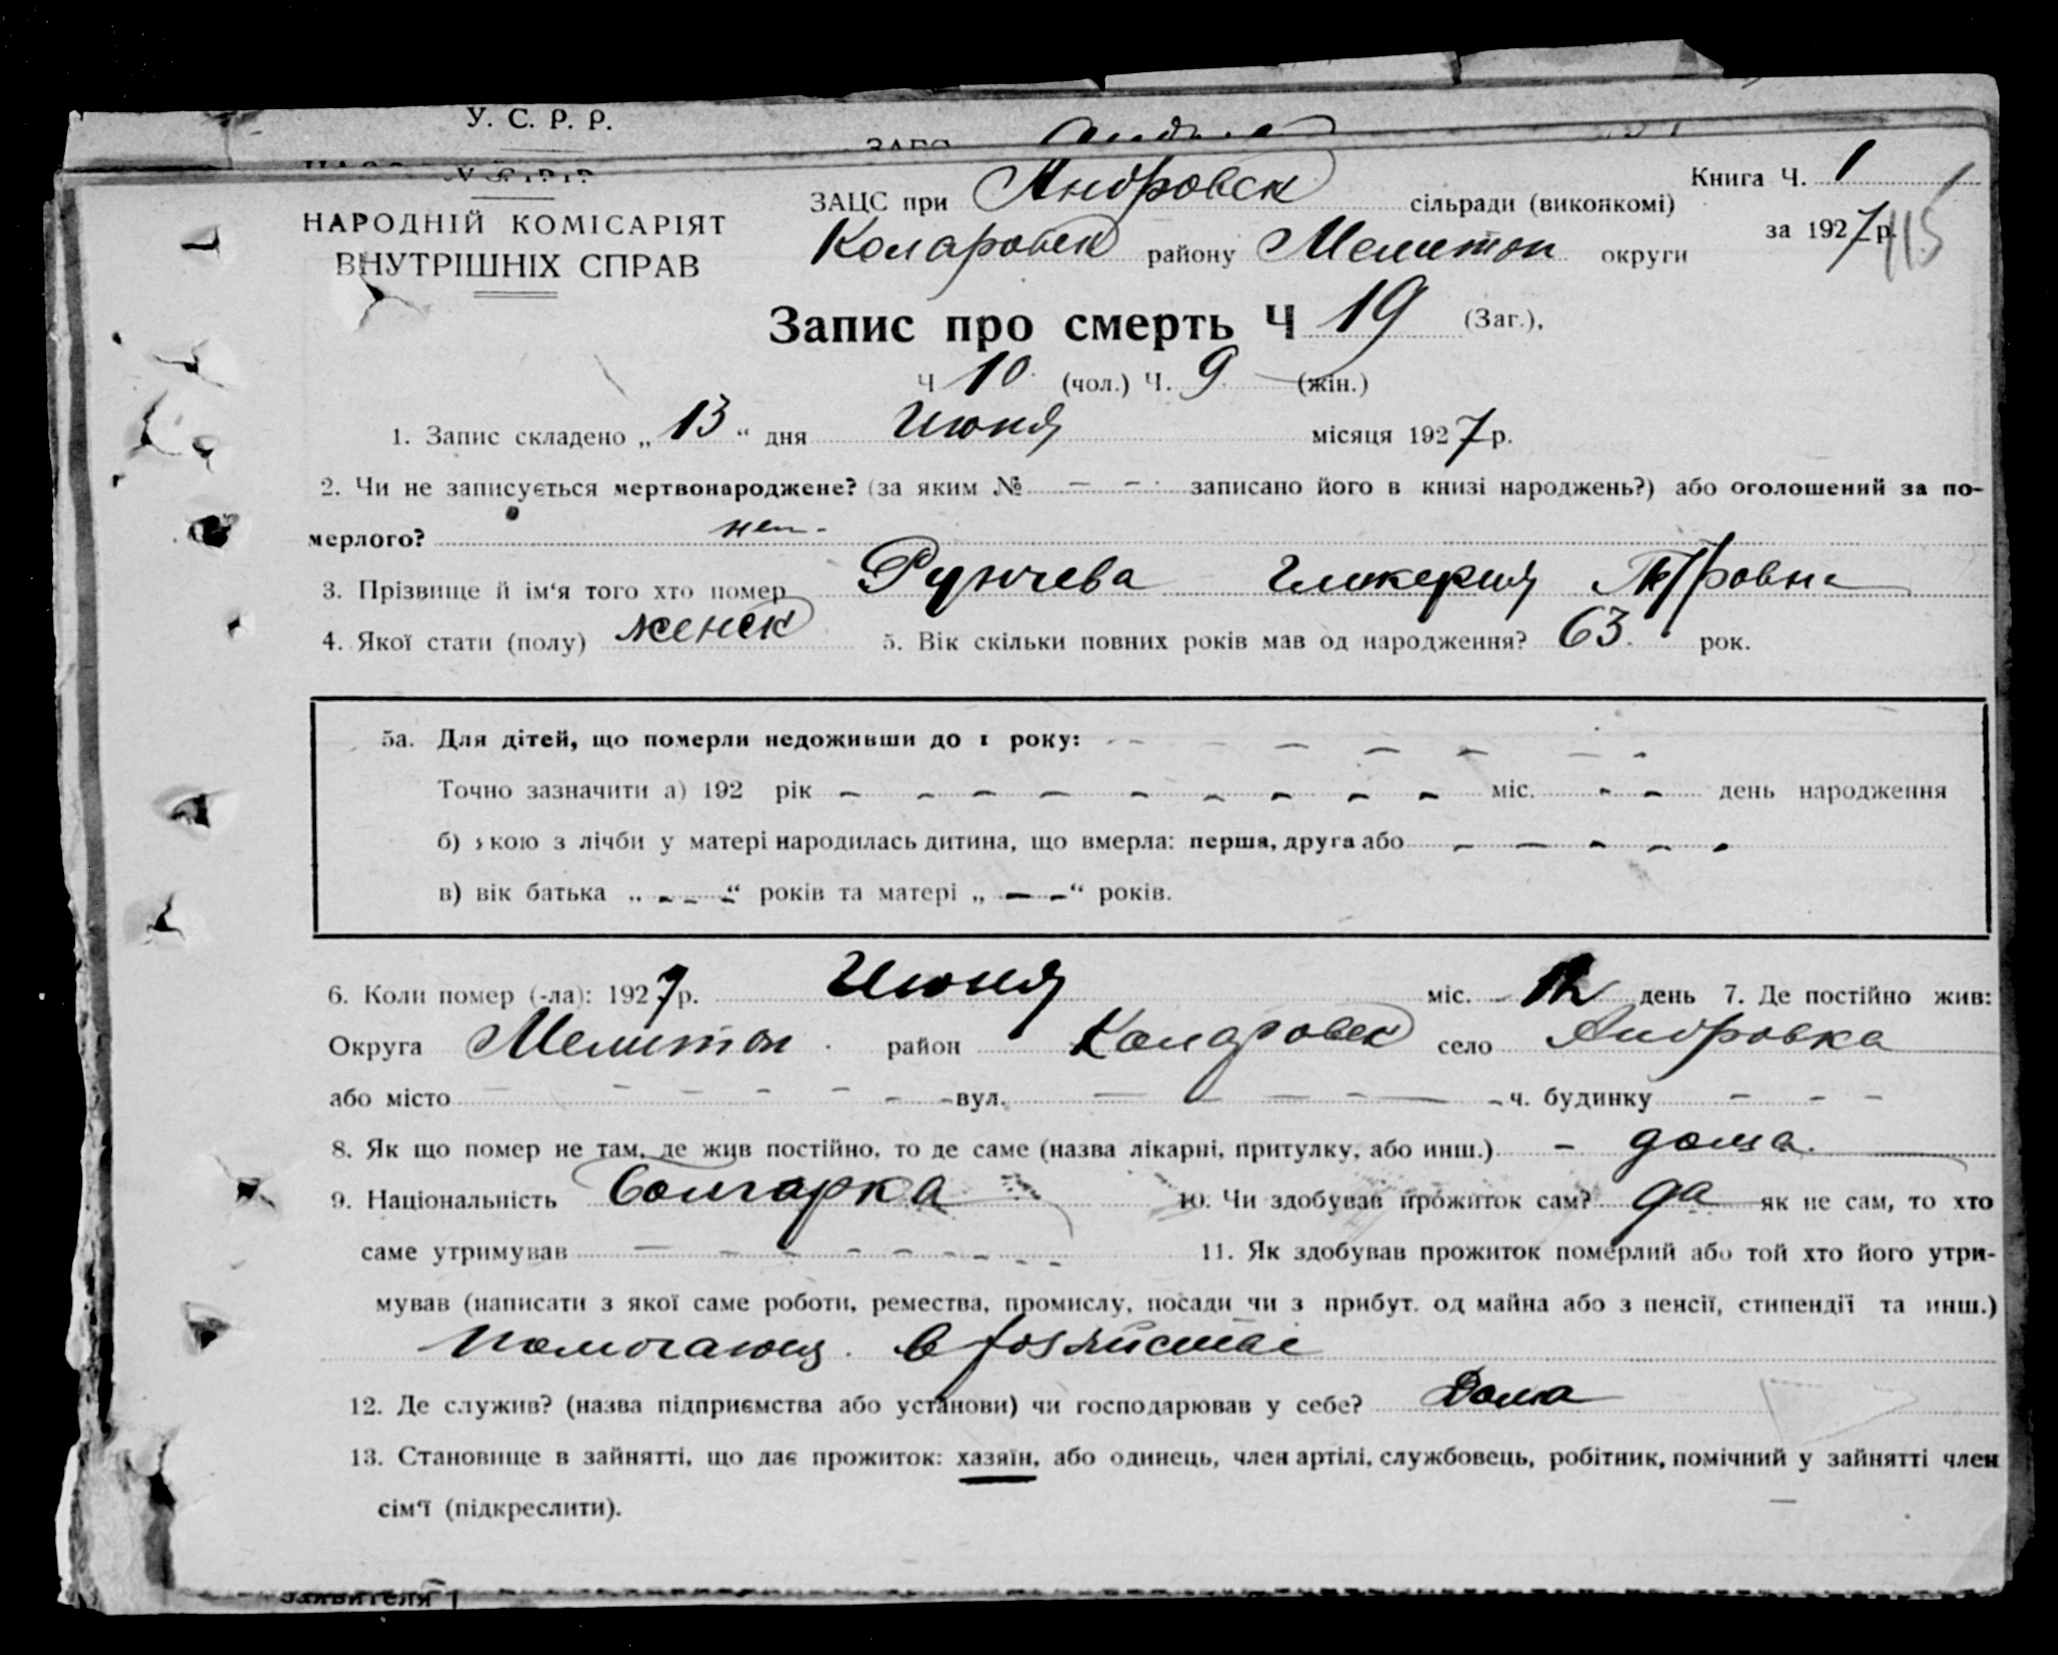 У. С. Р. Р.
ЗАЦС при Андровск сільради (виконкомі) Книга Ч. 1
НАРОДНІЙ КОМІСАРІЯТ
ВНУТРІШНІХ СПРАВ
Коларовск району Мелитоп округи за 1927 р. 115
Запис про смерть Ч 19 (Заг.),
Ч 10 (чол.) Ч. 9 (жін.)
1. Запис складено „ 13 “ дня Июня місяця 1927 р.
2. Чи не записується мертвонароджене? (за яким № – – записано його в книзі народжень?) або оголошений за по-
мерлого? нет.
3. Прізвище й ім‘я того хто помер Рунчева Гликерия Петровна
4. Якої стати (полу) женск 5. Вік скільки повних років мав од народження? 63. рок.
5а. Для дітей, що померли недоживши до 1 року: – – – – – – –
Точно зазначити а) 192 рік – – – – – – – – – міс. – – день народження
б) якою з лічби у матері народилась дитина, що вмерла: перша, друга або – – – – –
в) вік батька „ – – – “ років та матері „ – – “ років.
6. Коли помер (-ла): 1927 р. Июня міс. 12 день 7. Де постійно жив:
Округа Мелитоп. район Коларовск село Андровка
або місто – – – – – – вул. – – – – – – ч. будинку – – –
8. Як що помер не там, де жив постійно, то де саме (назва лікарні, притулку, або инш.) – дома.
9. Національність болгарка 10. Чи здобував прожиток сам? да як не сам, то хто
саме утримував – – – – – – – – 11. Як здобував прожиток померлий або той хто його утри-
мував (написати з якої саме роботи, ремества, промислу, посади чи з прибут. од майна або з пенсії, стипендії та инш.)
Помогающ. в хозяйстве
12. Де служив? (назва підприємства або установи) чи господарював у себе? Дома
13. Становище в зайнятті, що дає прожиток: хазяїн, або одинець, член артілі, службовець, робітник, помічний у зайнятті член
сім‘ї (підкреслити).